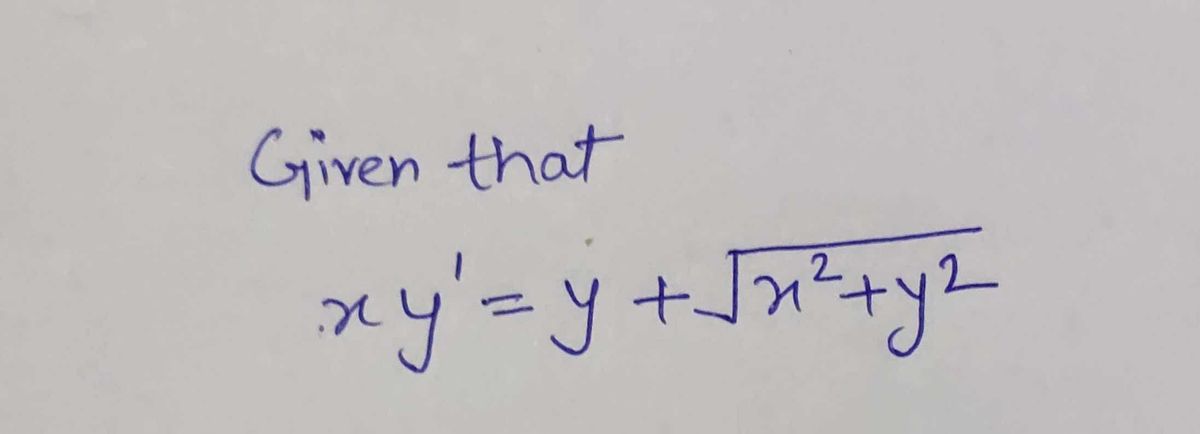 Given that
xy' = y + √x²+y²